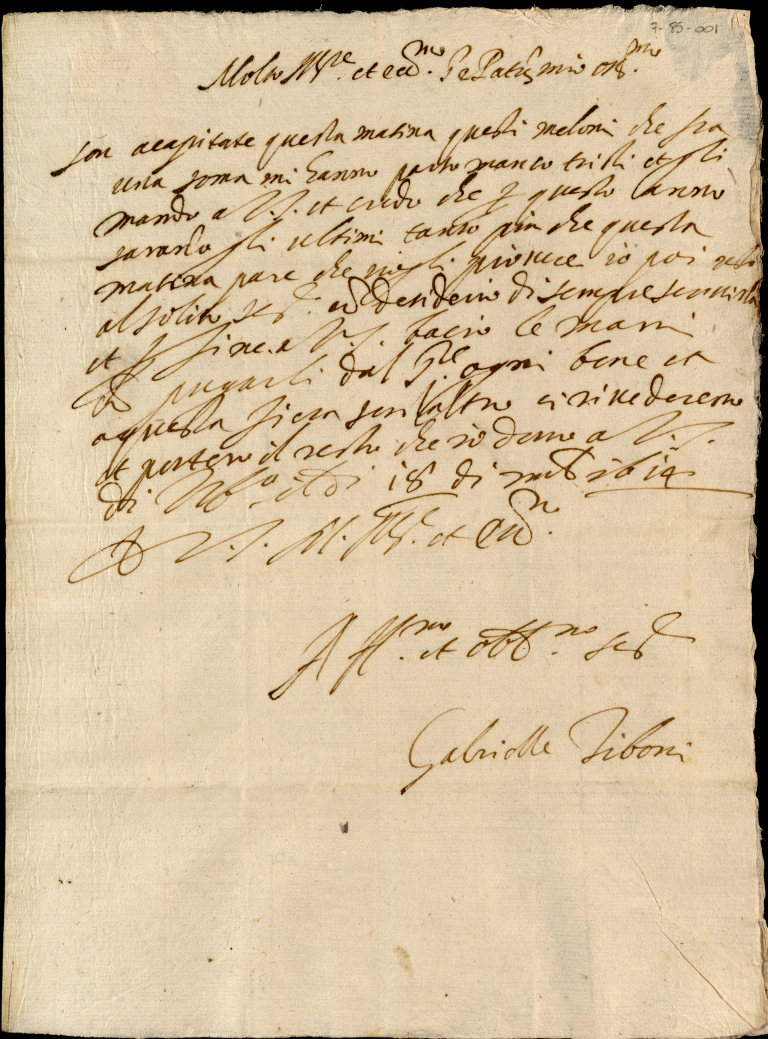 7-95-001
Molto Ill.re et ecc.mo Sr Patro mio oss.mo
son acapitate questa matina questi meloni che fra
una soma mi hanno parso manco tristi et gli
mando a V.S. et credo che p questo anno
sarano gli ultimi tanto piu che questa
matina pare che piovere io poi resto
al solito ser.r cō desiderio di sempre servirla
et p fine a V.S. bacio le mani
et pregarli dal S.re ogni bene et
a questa fiera senz altro ci rivederemo
et portero il resto che io devo a V.S.
di il di 18 di 1614
D V.S. M. Ill.re et Ecc.ma
Aff.mo et obb.mo ser.r
Gabrielle Tiboni